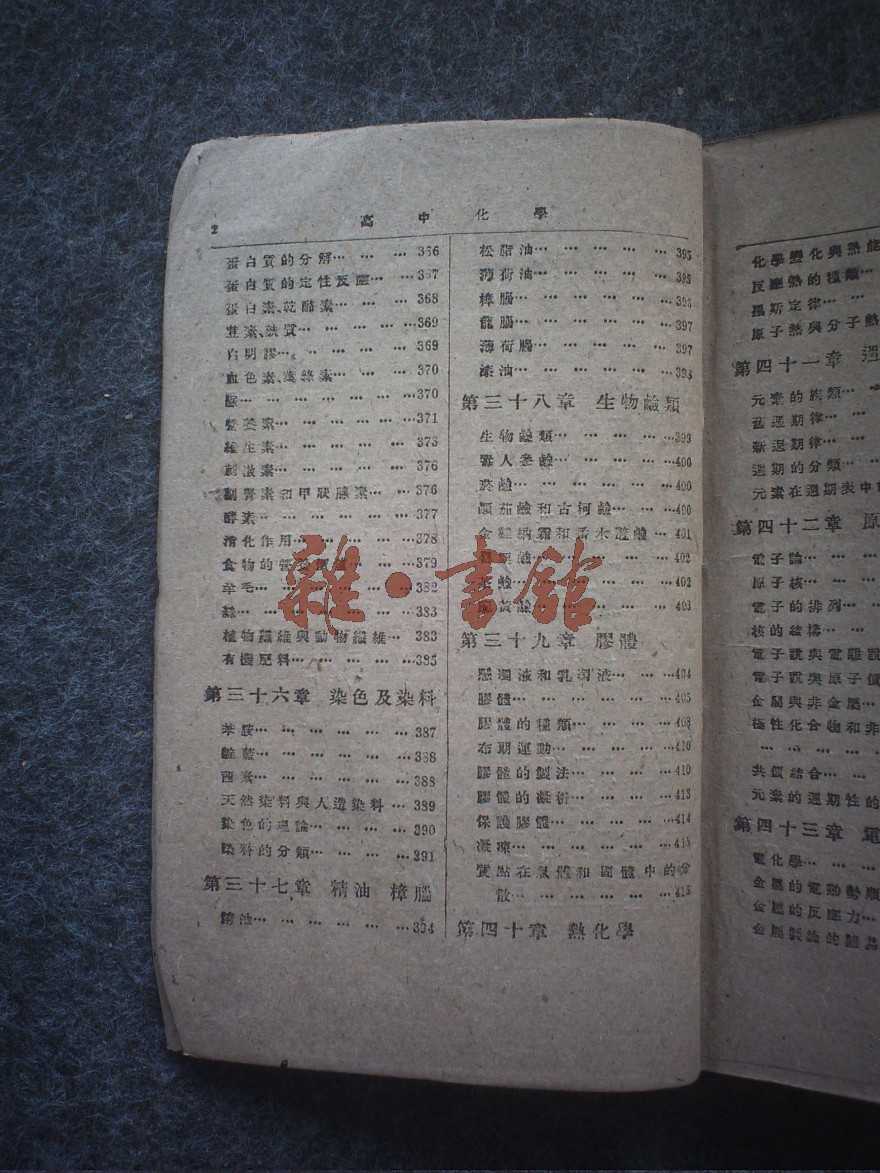 2
高中化學
蛋白質的分解… … … …366
蛋白質的定性反應… … …367
蛋白素、乾酪素… … … …368
…369
白明膠… … … … … …369
血色素、葉綠素… … … …370
… … … … … … …370
…371
維生素… … … … … …373
刺激素… … … … … …376
副腎素和甲狀腺素… …376
酵素… … … … … …377
消化作用… … … … …378
食物的營養價值… … …379
羊毛… … … … … …382
絲… … … … … … …383
植物纖維與動物纖維…383
有機原料… … … … …385
第三十六章 染色及染料
苯胺… … … … … …387
靛藍… … … … … …388
茜素… … … … … …388
天然染料與人造染料…389
染色的理論… … … …390
染料的分類… … … …391
第三十七章 精油 樟腦
精油… … … … … …394
松脂油… … … … … …395
薄荷油… … … … … …395
樟腦… … … … … …396
龍腦… … … … … …397
薄荷腦… … … … … …397
漆油… … … … … …398
第三十八章 生物鹼類
生物鹼類… … … … …399
毒人參鹼… … … … …400
菸鹼… … … … … …400
顛茄鹼和古柯鹼… … …400
金雞納霜和番木鱉鹼…401
…402
茶鹼… … … … … …402
麻黃鹼… … … … …403
第三十九章 膠體
懸濁液和乳濁液… … …404
膠體… … … … … …405
膠體的種類… … … …408
布朗運動… … … … …410
膠體的製法… … … …410
膠體的凝析… … … …413
保護膠體… … … … …414
凝凍… … … … … …415
質點在氣體和固體中的分
散… … … … … …415
第四十章 熱化學
化學變化與熱能
反應熱的種類…
黑斯定律…
原子熱與分子熱
第四十一章 週
元素的族類…
舊週期律…
新週期律…
週期的分類…
元素在週期表中
第四十二章 原
電子論…
原子核…
電子的排列…
核的結構…
電子說與電離說
電子說與原子價
金屬與非金屬…
極性化合物和非
… … … …
共價結合…
元素的週期性的
第四十三章 電
電化學…
金屬的電動勢順
金屬的反應力…
雜·書館